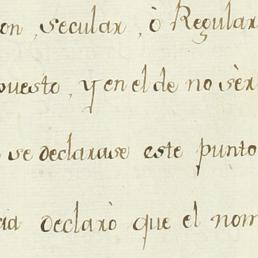 on, secular, ò Regular
puesto, y en el de no sèr
se declarase este punto
declarò que el nom